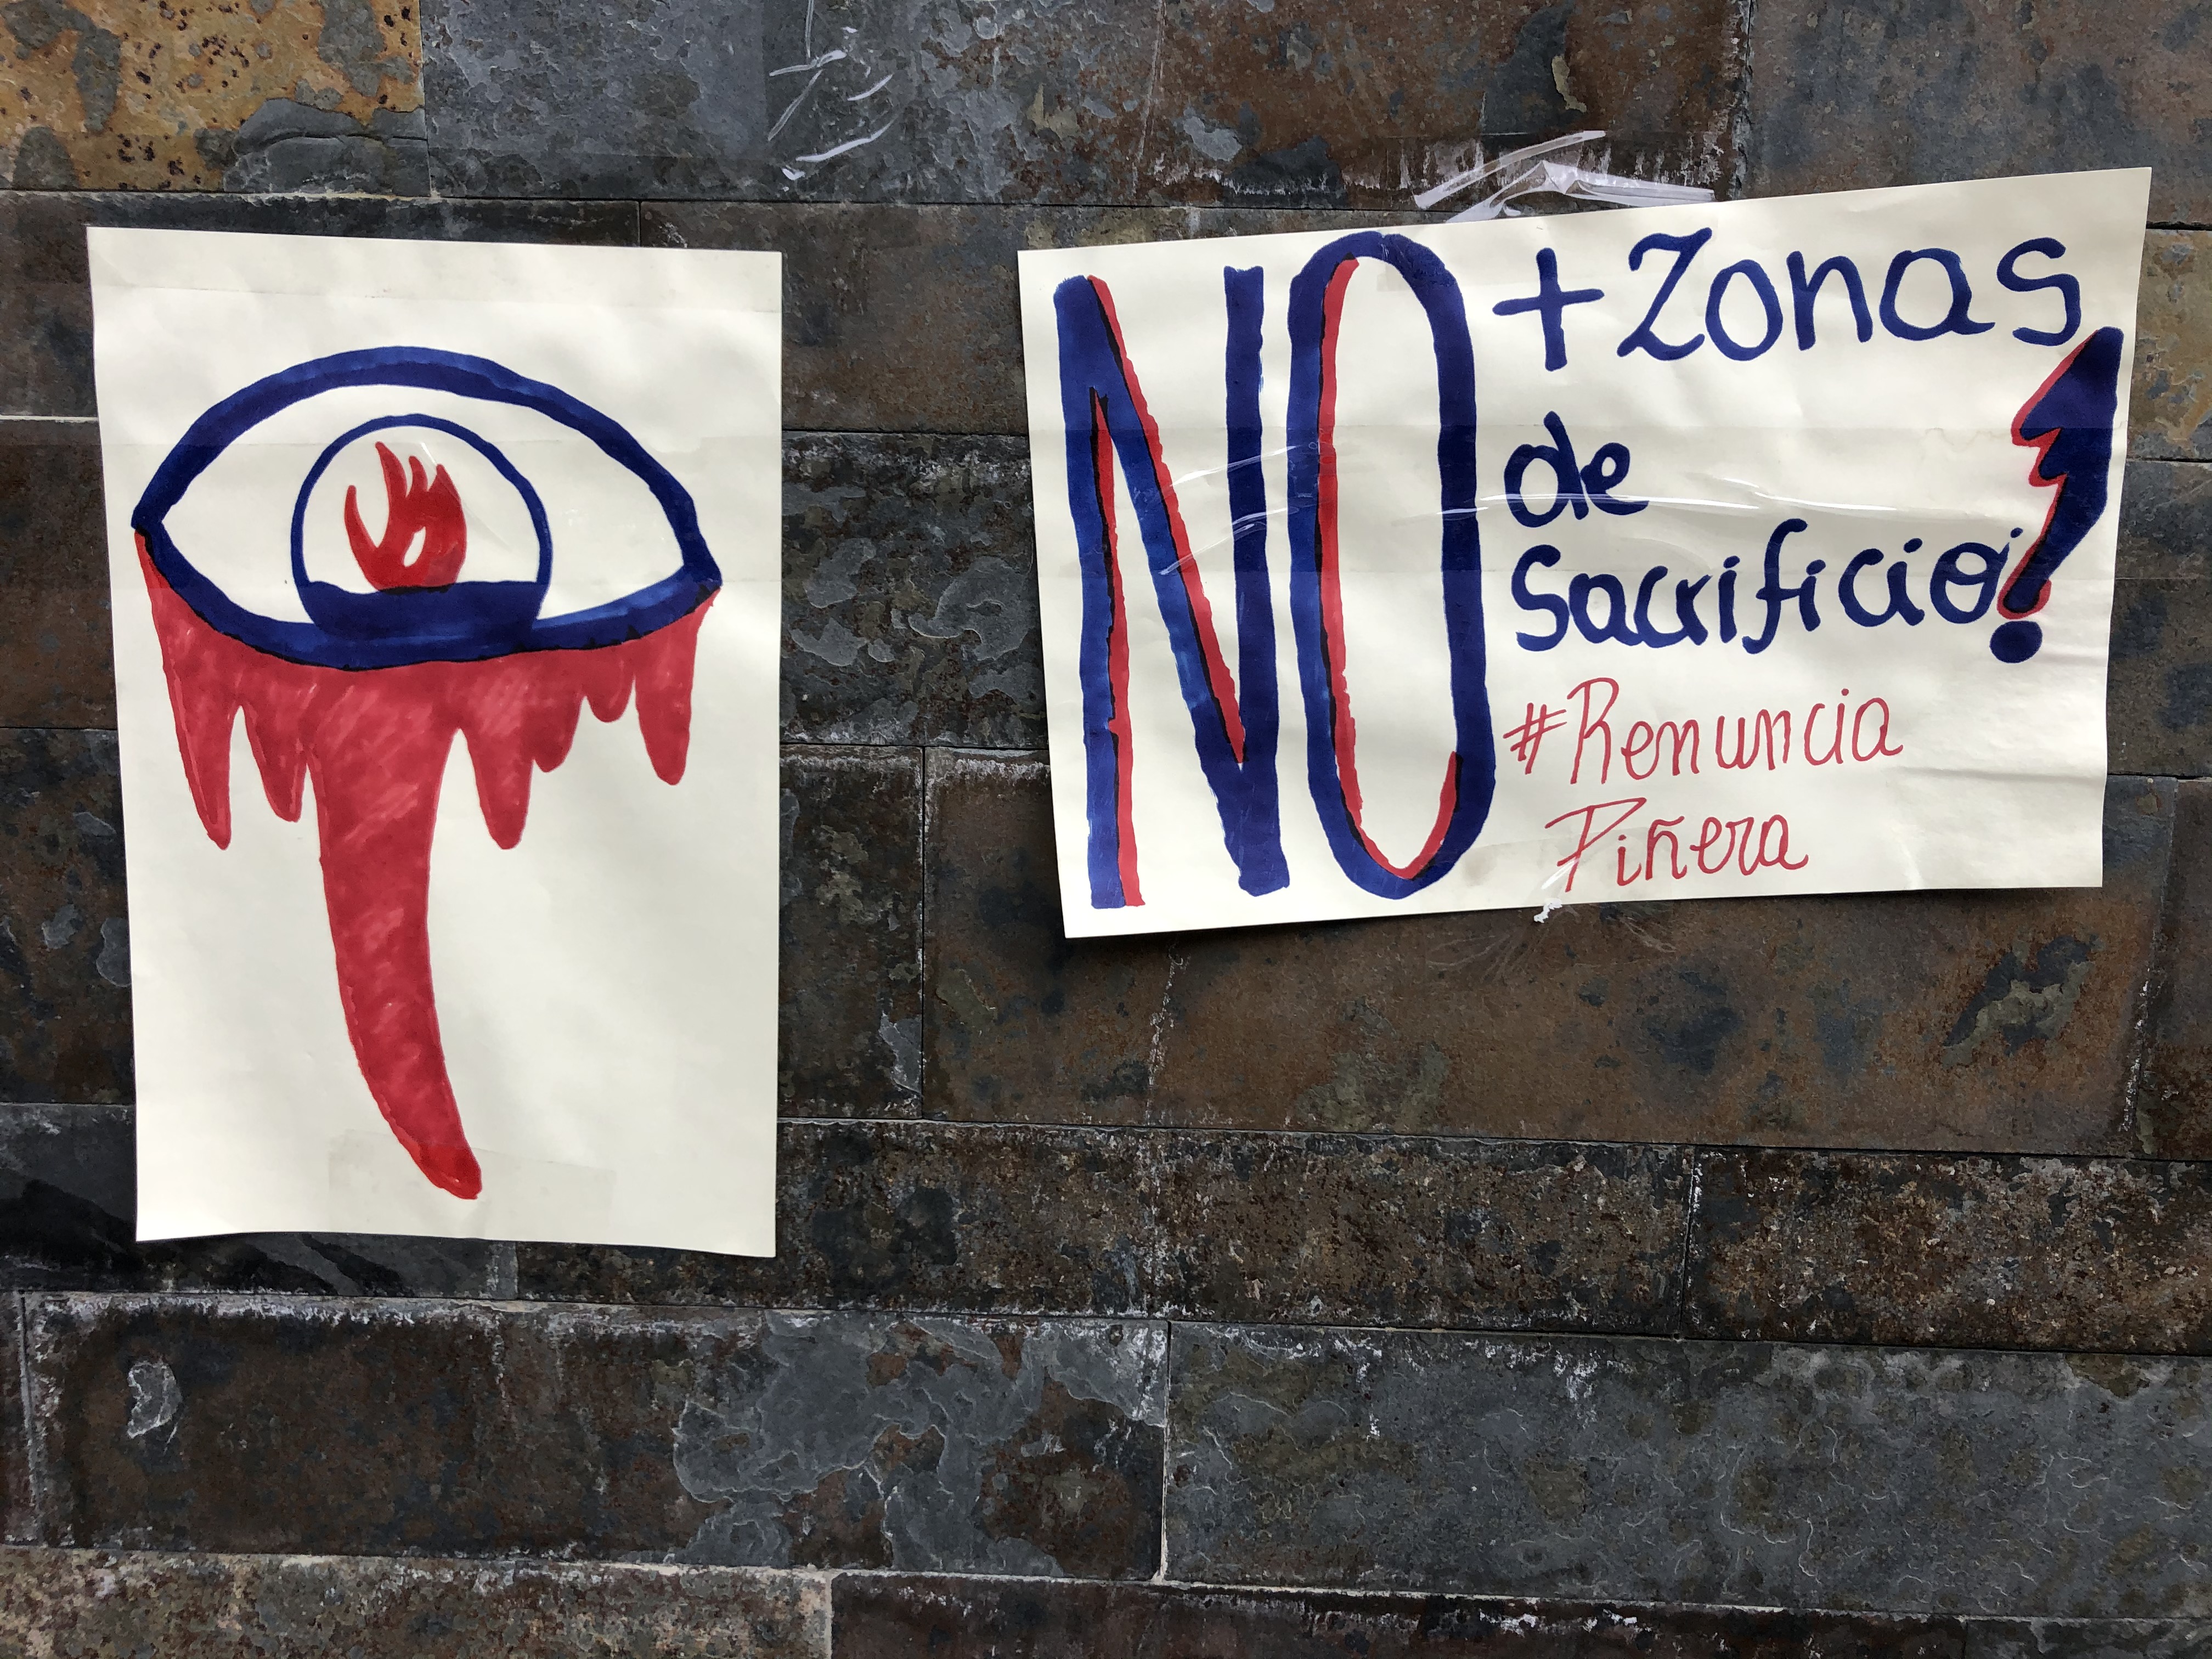 NO + Zonas
de
Sacrificio!
#Renuncia
Piñera